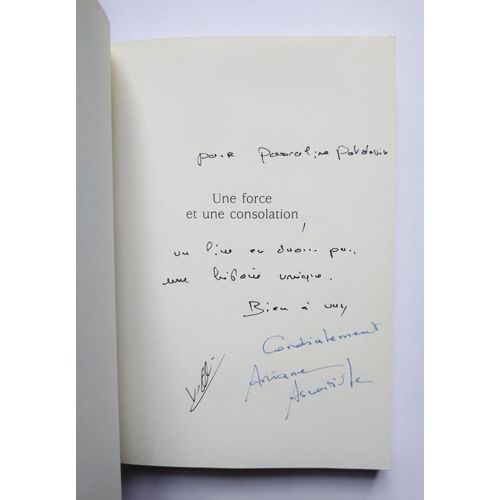 pour Pascaline Patdouin
Une force
et une consolation,
un livre en duo... pour
une histoire unique.
Bien à vous
Cordialement
Ariane
Ascaride